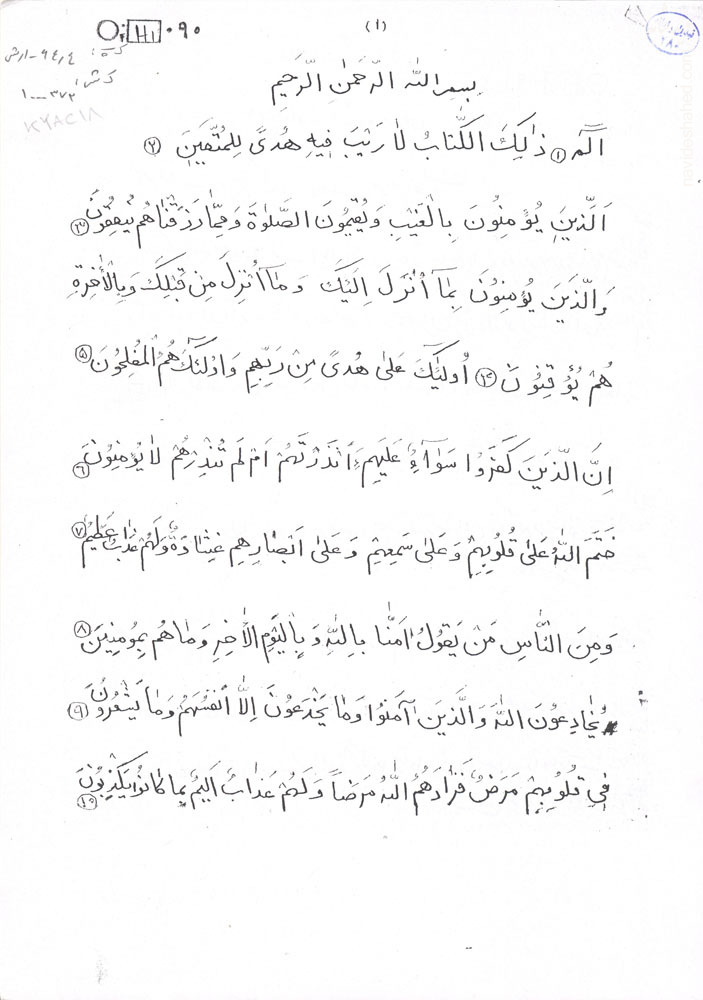 (١)
۰۹۰
بِسمِ اللّٰهِ الرَّحمٰنِ الرَّحِيمِ
الٓمٓ ۱ ذٰلِكَ الكِتَابُ لاٰ رَيْبَ فِيهِ هُدىً لِلمُتَّقِينَ ۲
اَلَّذِينَ يُؤمِنُونَ بِالْغَيْبِ وَيُقِيمُونَ الصَّلوٰةَ وَمِمّٰا رَزَقْنٰاهُم يُنفِقُونَ ۳
وَالَّذِينَ يُؤمِنُونَ بِمٰا اُنْزِلَ اِلَيْكَ وَمٰا اُنْزِلَ مِن قَبْلِكَ وَبِالْأٰخِرَةِ
هُمْ يُؤقِنُونَ ۴ اُولٰئِكَ عَلىٰ هُدىً مِنْ رَبِّهِم وَاُولٰئِكَ هُمُ الْمُفْلِحُونَ ۵
اِنَّ الَّذِينَ كَفَرُوا سَوٰاءٌ عَلَيْهِم ءَاَنْذَرْتَهُمْ اَمْ لَم تُنْذِرْهُمْ لاٰ يُؤمِنُونَ ۶
خَتَمَ اللّٰهُ عَلىٰ قُلُوبِهِمْ وَعَلىٰ سَمعِهِم وَعَلىٰ اَبْصٰارِهِم غِشٰاوَةٌ وَلَهُم عَذٰابٌ عَظِيمٌ ۷
وَمِنَ النّٰاسِ مَنْ يَقُولُ اٰمَنّٰا بِاللّٰهِ وَبِالْيَوْمِ الْأٰخِرِ وَمٰا هُم بِمُومِنِينَ ۸
يُخٰادِعُونَ اللّٰهَ وَالَّذِينَ اٰمَنُوا وَمٰا يَخْدَعُونَ اِلّٰا اَنْفُسَهُمْ وَمٰا يَشْعُرُونَ ۹
فِي قُلُوبِهِمْ مَرَضٌ فَزٰادَهُمُ اللّٰهُ مَرَضاً وَلَهُمْ عَذٰابٌ اَلِيمٌ بِمٰا كٰانُوا يَكْذِبُونَ ۱۰